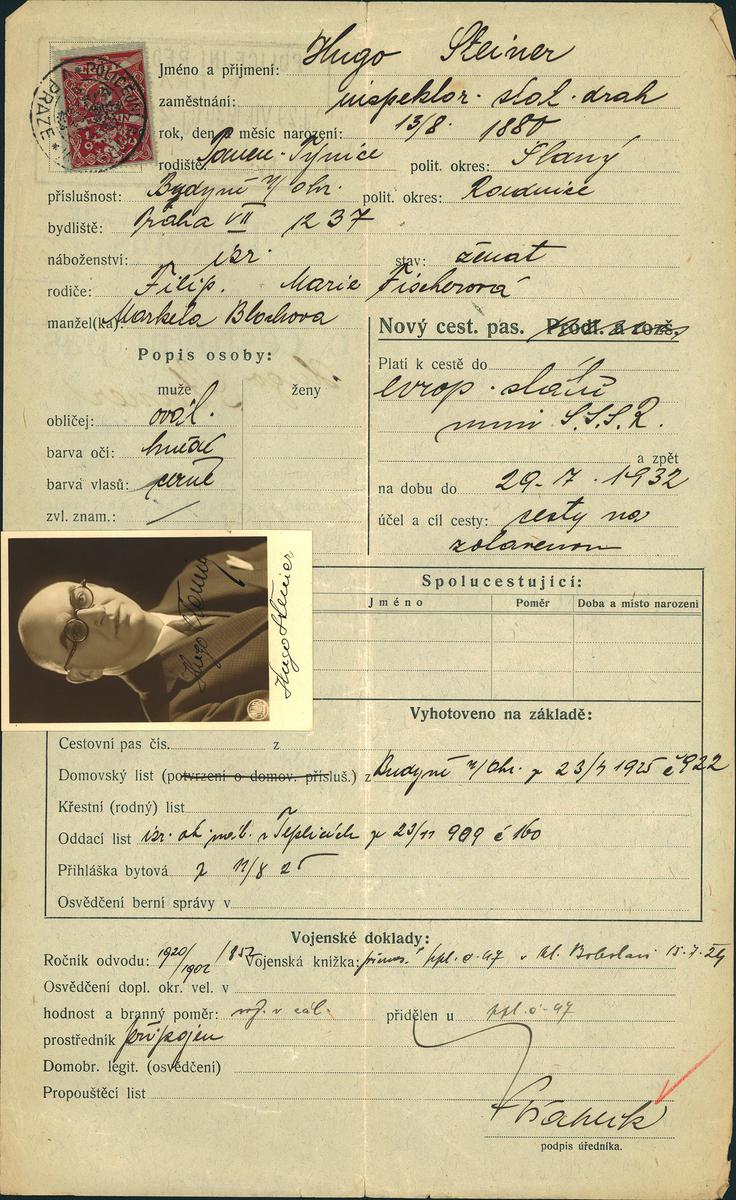 Jméno a příjmení: Hugo Steiner
zaměstnání: inspektor. stát. drah
rok, den a měsíc narození: 13/8. 1880
rodiště: Týnice polit. okres: Slaný
příslušnost: Budyně n/ohr. polit. okres: Roudnice
bydliště: Praha VII 1237
náboženství: izr. stav: ženat
rodiče: Filip. Marie Fischerová
manžel(ka): Markéta Blochova
Nový cest. pas. Prodl. a rozš.
Popis osoby:
muže ženy
obličej: ovál.
barva očí: hnědé
barva vlasů: černé
zvl. znam.: /
Platí k cestě do
evrop. států
mimo S.S.S.R.
a zpět
na dobu do 29.7.1932
účel a cíl cesty: cesty na
zotavenou
Hugo Steiner
Hugo Steiner
Spolucestující:
Jméno Poměr Doba a místo narození
Vyhotoveno na základě:
Cestovní pas čís. z
Domovský list (potvrzení o domov. přísluš.) z Budyně n/Ohr. z 23/7 1925 č 922
Křestní (rodný) list
Oddací list izr. ob. v Teplicích z 23/11 909 č 160
Přihláška bytová z 11/8 25
Osvědčení berní správy v
Vojenské doklady:
Ročník odvodu: 1920/1902 /852 Vojenská knížka: ppl. č. 47 v Ml. Boleslavi 15.7.24
Osvědčení dopl. okr. vel. v
hodnost a branný poměr: voj. v zál. přidělen u ppl. č. 47
prostředník připojen
Domobr. legit. (osvědčení)
Propouštěcí list
podpis úředníka.